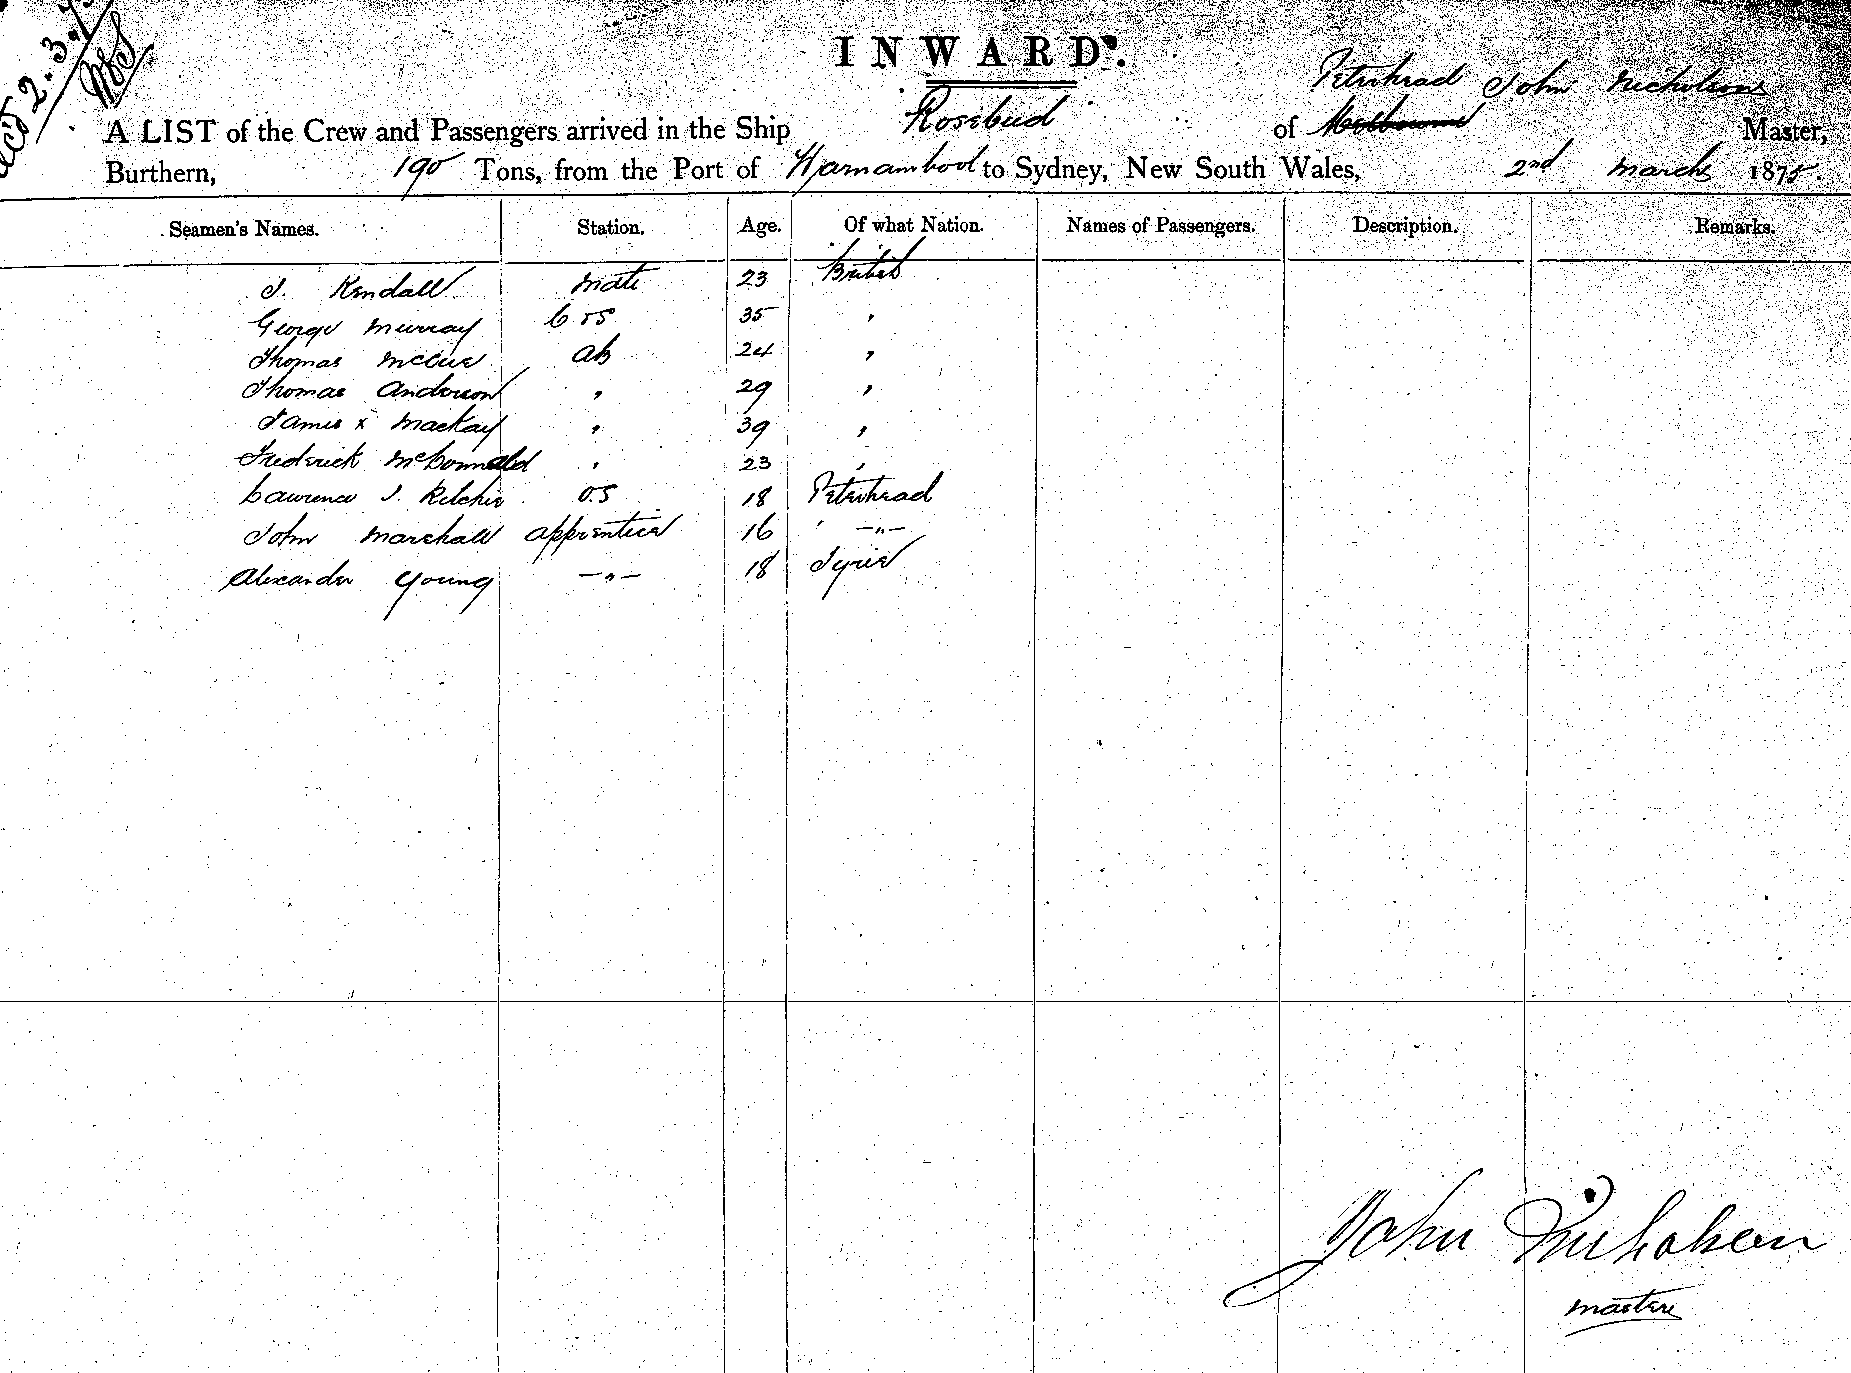 Recd 2.3.75
INWARD.
Peterhead John Nicholson
A LIST of the Crew and Passengers arrived in the Ship Rosebud of Melbourne Master,
Burthern, 190 Tons, from the Port of Warnambool to Sydney, New South Wales, 2nd March 1875.
Seamen's Names. Station. Age. Of what Nation. Names of Passengers. Description. Remarks.
J. Kendall Mate 23 British
George Murray C & S 35 "
Thomas McCue AB 24 "
Thomas Anderson " 29 "
James x Mackay " 39 "
Frederick McDonnald " 23 "
Lawrence J. Ritchie OS 18 Peterhead
John Marshall apprentice 16 " — " —
Alexander Young — " — 18 Tyrie
John Nicholson
master